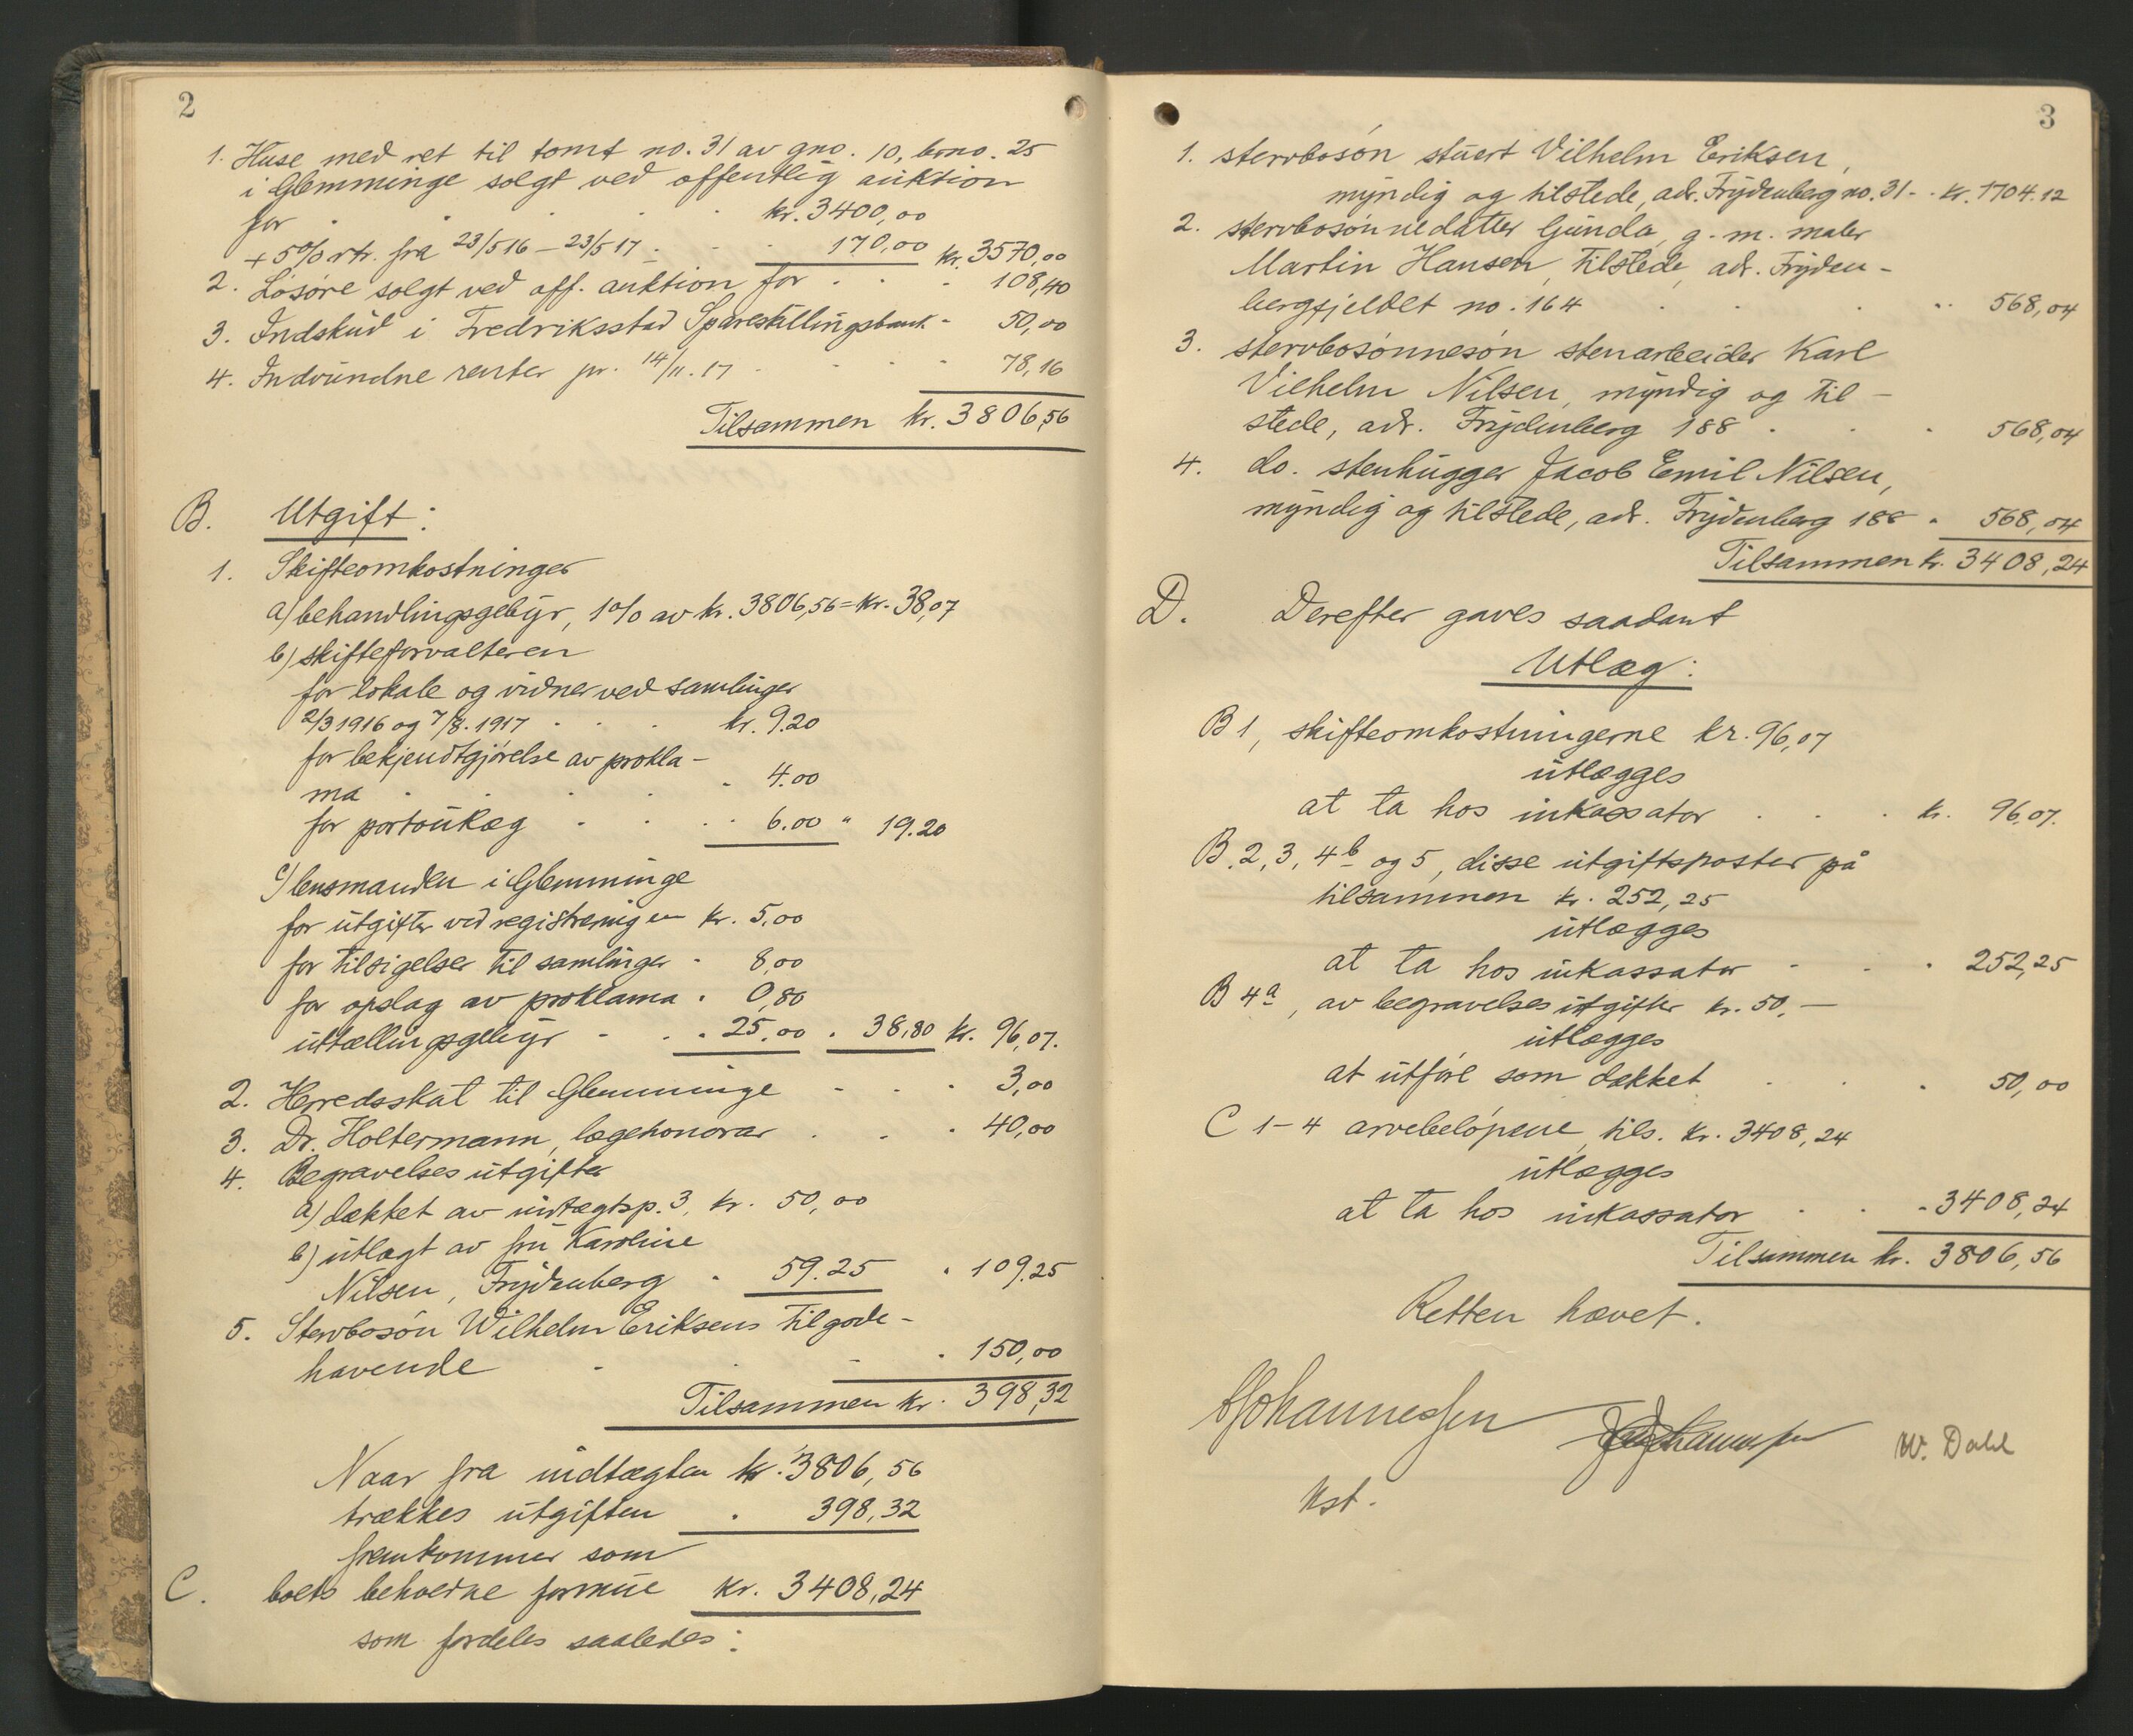 2
1. Huse med ret til tomt no. 31 av gno. 10, brno. 25
i Glemminge solgt ved offentlig auktion
for . . . . kr. 3400,00
+ 5% rtr. fra 23/5 16 – 23/5 17 . . . 170,00 kr. 3570,00
2. Løsøre solgt ved off. auktion for . . . 108,40
3. Indskud i Fredriksstad Spareskillingsbank - 50,00
4. Indvundne renter pr. 14/11.17 . . . . 78,16
Tilsammen kr. 3806,56
B. Utgift:
1. Skifteomkostninger
a) behandlingsgebyr, 1% av kr. 3806,56 = kr. 38,07
b) skifteforvalteren
for lokale og vidner ved samlinger
2/3 1916 og 7/8. 1917 . . . kr. 9.20
for bekjendtgjørelse av prokla-
ma . . . . . 4.00
for portoutlæg . . . . 6.00 " 19.20
c) lensmanden i Glemminge
for utgifter ved registreringen kr. 5,00
for tilsigelser til samlinger - 8,00
for opslag av proklama . 0,80
uttællingsgebyr - . . 25,00 . 38,80 kr. 96,07.
2. Herredsskat til Glemminge - . . 3,00
3. Dr. Holtermann, lægehonorar . . . 40,00
4. Begravelsesutgifter
a) dækket av indtægtsp. 3, kr. 50,00
b) utlagt av fru Karoline
Nilsen, Frydenberg . 59.25 . 109.25
5. Stervbosøn Wilhelm Eriksens tilgode-
havende . . . . 150,00
Tilsammen kr. 398,32
Naar fra indtægten kr. 3806,56
trækkes utgiften . 398,32
fremkommer som
C. boets beholdne formue kr. 3408,24
som fordeles saaledes:
3
1. stervbosøn stuert Vilhelm Eriksen,
myndig og tilstede, adr. Frydenberg no. 31 - . kr. 1704.12
2. stervbosønnedatter Gunda, g. m. maler
Martin Hansen, tilstede, adr. Fryden-
bergfjeldet no. 164 . . . . 568,04
3. stervbosønnesøn stenarbeider Karl
Vilhelm Nilsen, myndig og til-
stede, adr. Frydenberg 188 . . . 568,04
4. do. stenhugger Jacob Emil Nilsen,
myndig og tilstede, adr. Frydenberg 188 . 568,04
Tilsammen kr. 3408,24
D. Derefter gaves saadant
Utlæg:
B 1, skifteomkostningerne kr. 96,07
utlægges
at ta hos inkassator . . . kr. 96,07.
B. 2, 3, 4b og 5, disse utgiftsposter på
tilsammen kr. 252,25
utlægges
at ta hos inkassator - . . 252,25
B 4a, av begravelsesutgifter kr. 50,—
utlægges
at utføre som dækket . . . 50,00
C 1–4 arvebeløpene, tils. kr. 3408,24
utlægges
at ta hos inkassator . . . 3408,24
Tilsammen kr. 3806,56
Retten hævet.
Johannessen
W. Dahl
Kst.